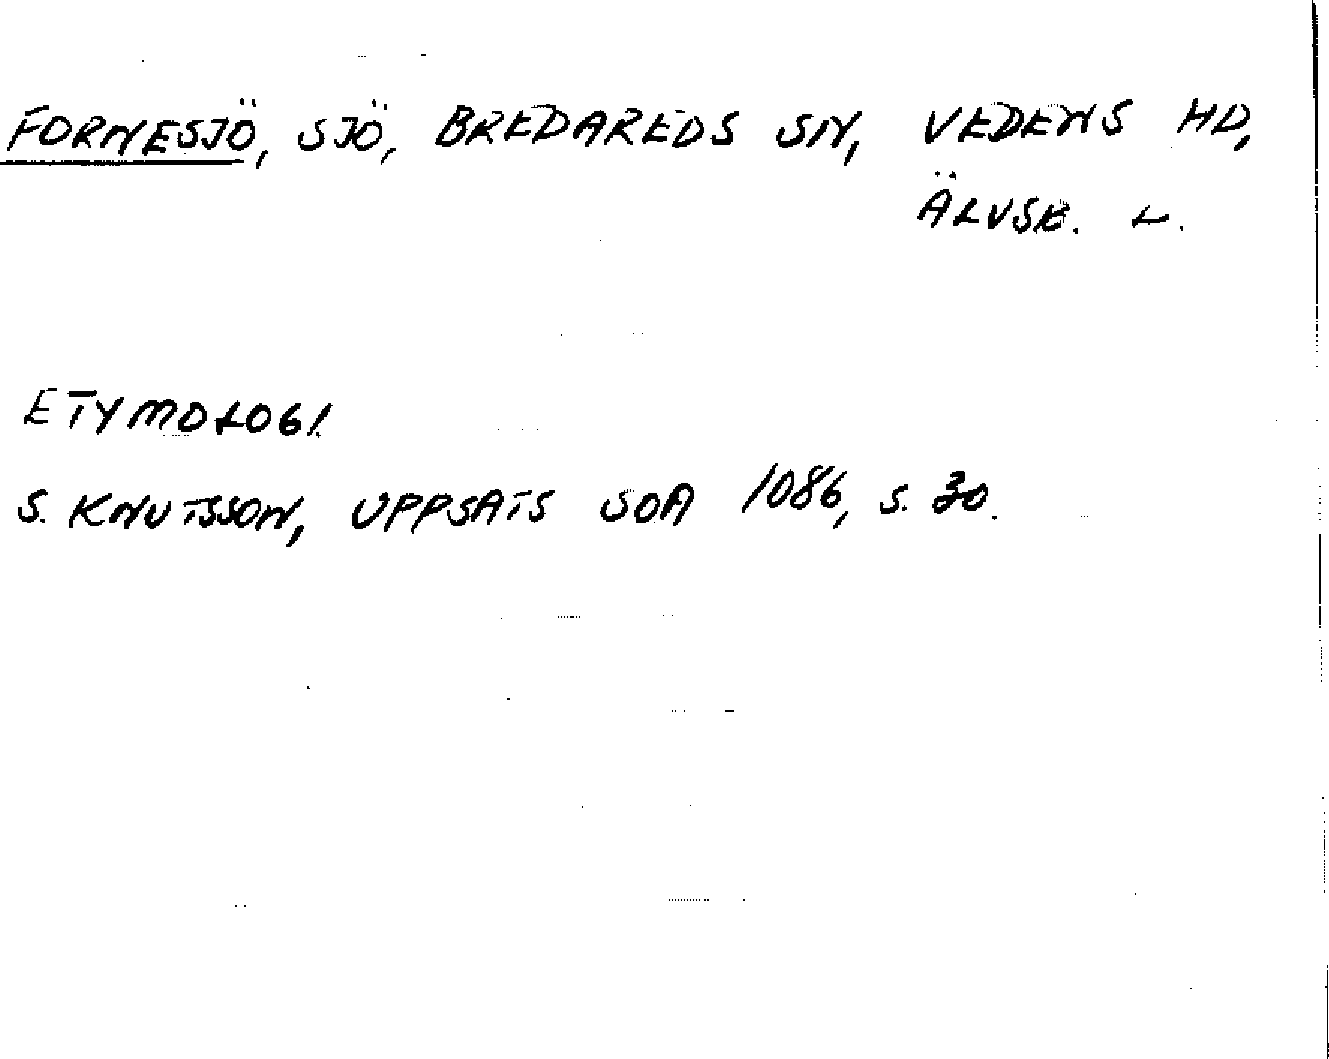 FORNESJÖ, SJÖ, BREDAREDS SN, VEDENS HD,
ÄLVSB. L.
ETYMOLOGI.
S. KNUTSSON, UPPSATS SOA 1086, S. 30.